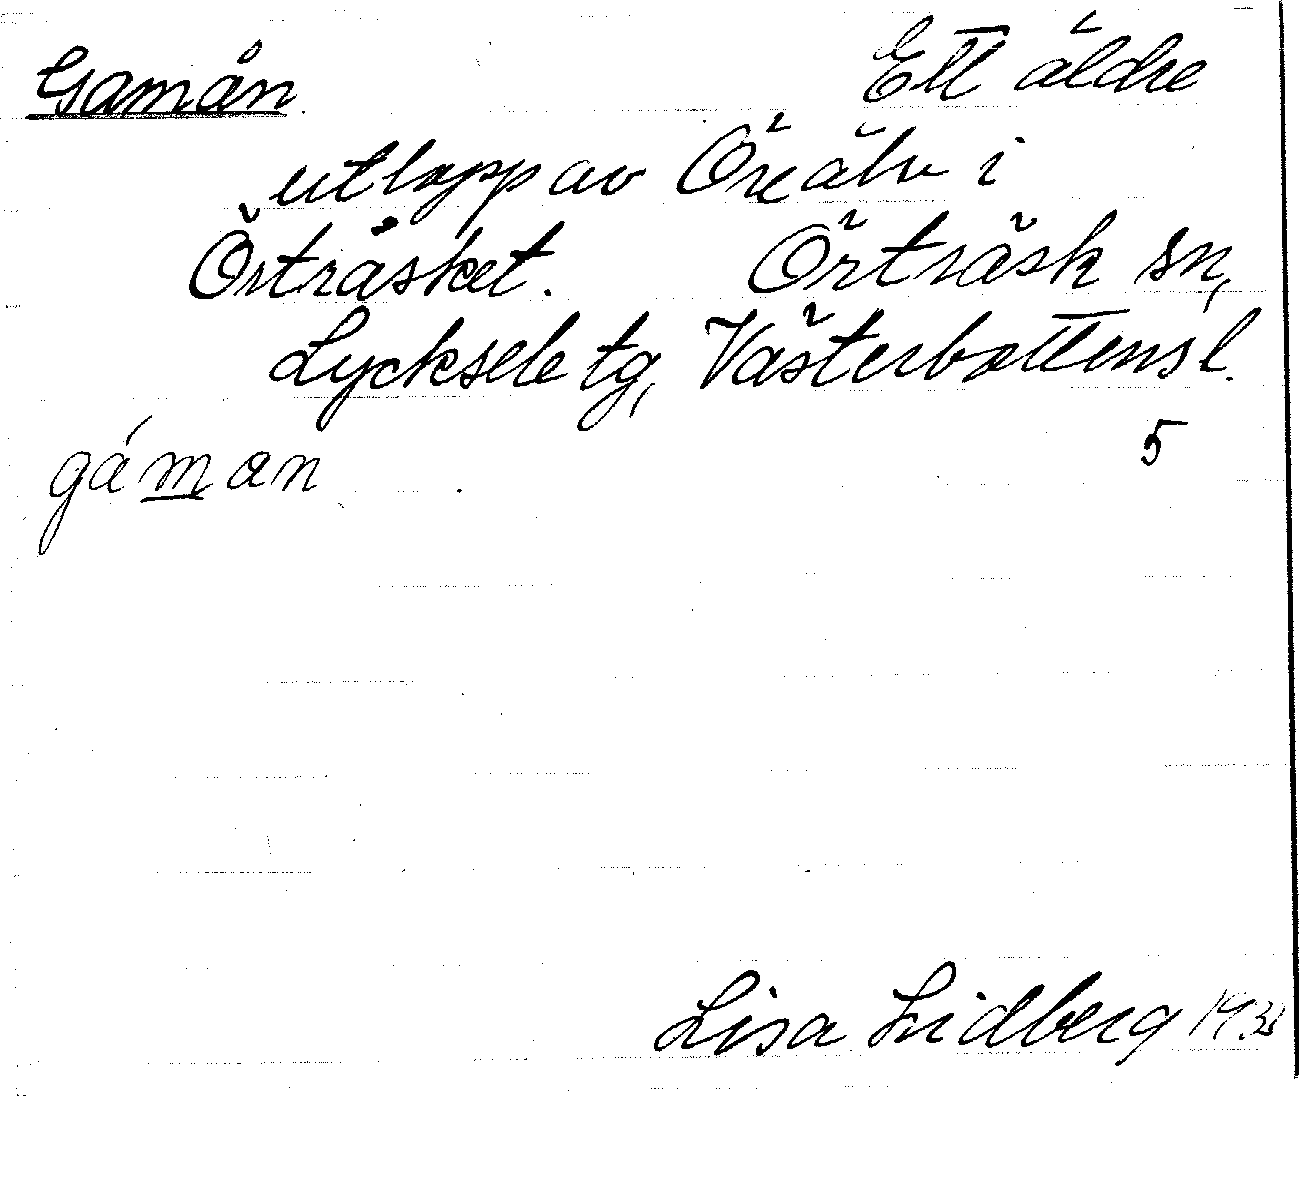 Gamån Ett äldre
utlopp av Öreälv i
Örträsket. Örträsk sn,
Lycksele tg, Västerbottens l.
gáman 5
Lisa Lidberg